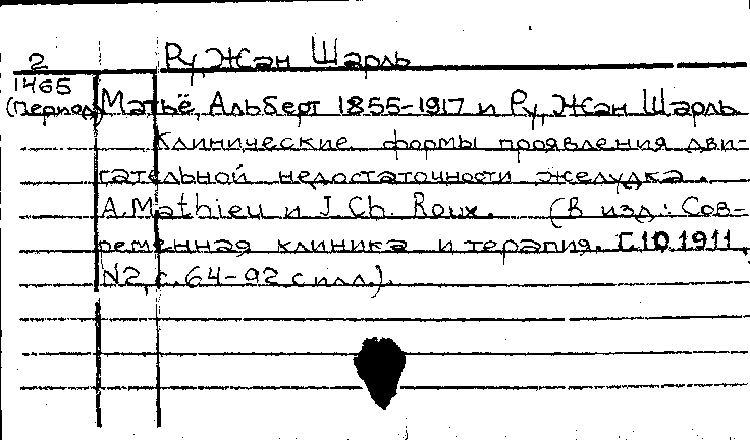 2 Ру, Жан Шарль
1465
(период) Матьё, Альберт 1855-1917 и Ру, Жан Шарль
Клинические формы проявления дви-
гательной недостаточности желудка.
A. Mathieu и J. Ch. Roux. (В изд.: Сов-
ременная клиника и терапия. Г. 10. 1911,
N2, с. 64-92 с илл.).